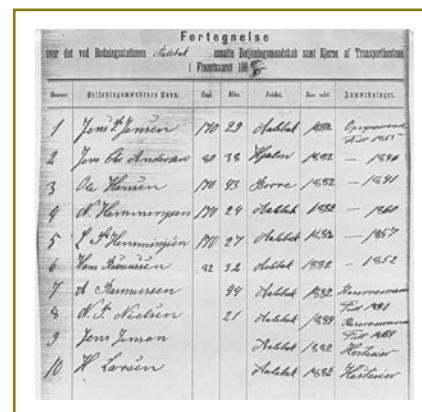 Fortegnelse
over det ved Redningsstationen Aalebæk ansatte Betjeningsmandskab samt Kjerne af Transporthestene
i Finantsaaret 188
Nummer. Betjeningsmændenes Navn. Bopæl. Alder. Fødested. Naar ansat. Anmærkninger.
1 Jens P. Jensen 170 29 Aalebæk 1882
Født 1855
2 Jens Chr Andersen 80 38 1882 — 1846
3 Ole Hansen 170 43 Borre 1882 — 1841
4 N. Hemmingsen 170 24 Aalebæk 1882 — 1860
5 L P Hemmingsen 170 27 Aalebæk 1882 — 1857
6 Hans Rasmussen 82 32 Aalebæk 1882 — 1852
7 A Rasmussen 44 Aalebæk 1882 Reservemand
8 N. P. Nielsen 21 Aalebæk 1884 Reservemand
9 Jens Jensen Aalebæk 1882 Hesteeier
10 H Larsen Aalebæk 1882 Hesteeier